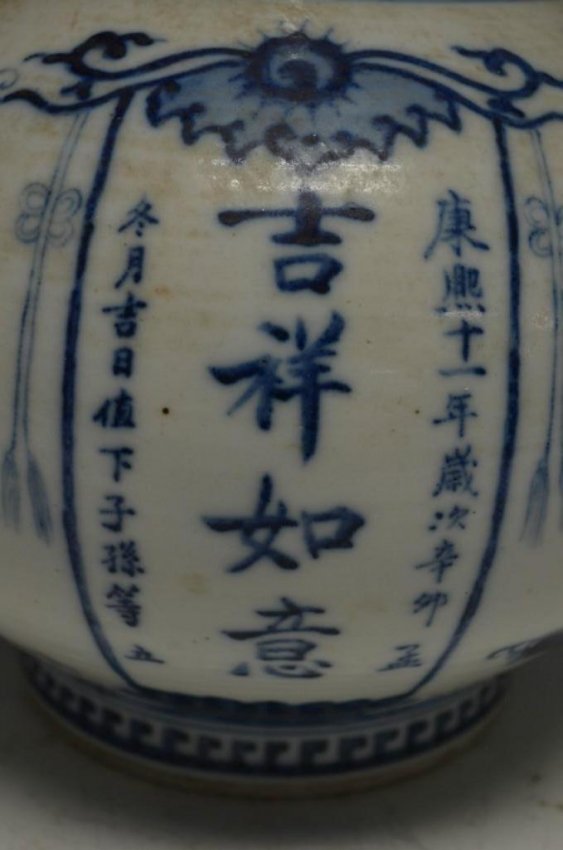 康熙十一年歳次辛卯孟
吉祥如意
冬月吉日值下子孫等立